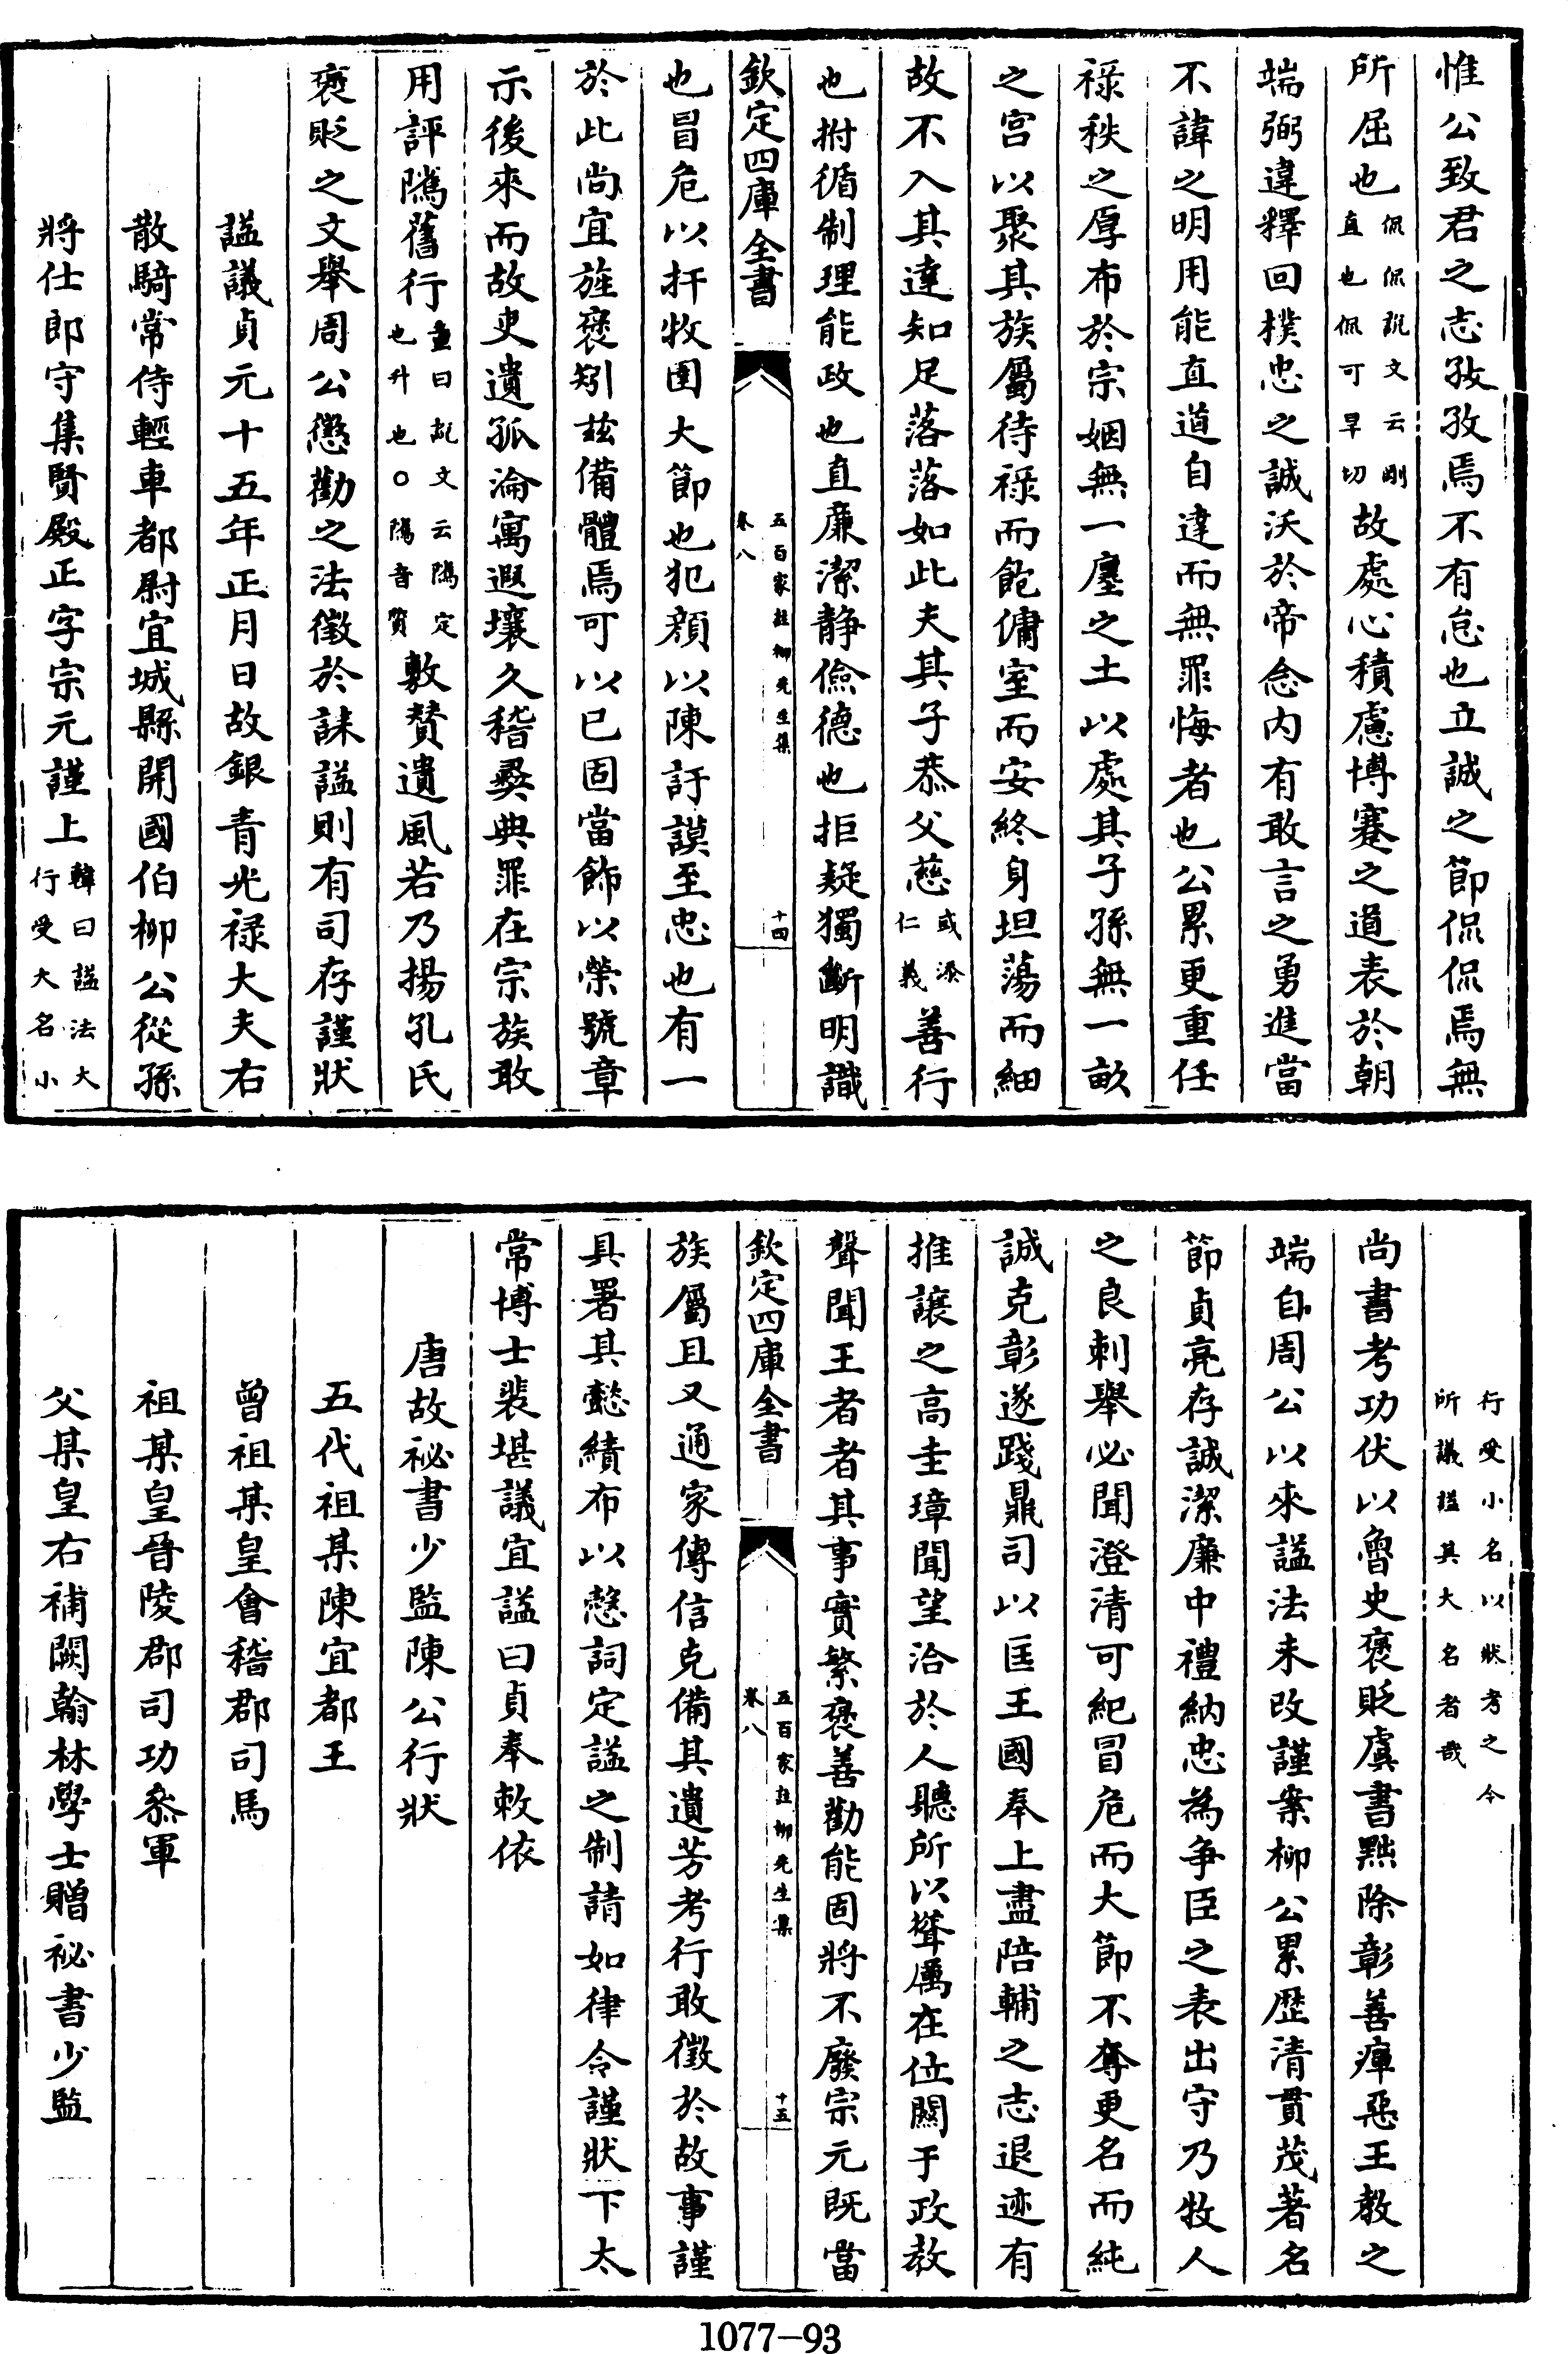 惟公致君之志孜孜焉不有怠也立誠之節侃侃焉無
所屈也侃侃説文云剛直也侃可旱切故處心積慮博蹇之道表於朝
端弼違釋回樸忠之誠沃於帝念内有敢言之勇進當
不諱之明用能直道自達而無罪悔者也公累更重任
祿秩之厚布於宗姻無一廛之土以處其子孫無一畝
之宫以聚其族屬待祿而飽傭室而安終身坦蕩而細
故不入其達知足落落如此夫其子恭父慈或添仁義善行
也拊循制理能政也直廉潔静儉德也拒疑獨斷明識
欽定四庫全書
五百家註柳先生集
卷八
十四
也冒危以扞牧圉大節也犯顔以陳訏謨至忠也有一
於此尚宜旌褒矧兹備體焉可以已固當飾以榮號章
示後來而故吏遺孤淪寓遐壤久稽彛典罪在宗族敢
用評隲舊行童曰説文云隲定也升也○隲音質敷贊遺風若乃揚孔氏
褒貶之文舉周公懲勸之法徵於誄諡則有司存謹狀
諡議貞元十五年正月日故銀青光祿大夫右
散騎常侍輕車都尉宜城縣開國伯柳公從孫
將仕郎守集賢殿正字宗元謹上韓曰諡法大行受大名小
行受小名以狀考之今所議諡其大名者哉
尚書考功伏以魯史褒貶虞書黜除彰善癉惡王教之
端自周公以來諡法未改謹案柳公累歴清貫茂著名
節貞亮存誠潔廉中禮納忠為争臣之表出守乃牧人
之良刺舉必聞澄清可紀冒危而大節不奪更名而純
誠克彰遂踐鼎司以匡王國奉上盡陪輔之志退迹有
推讓之高圭璋聞望洽於人聽所以聳厲在位闗于政教
聲聞王者者其事實繁褒善勸能固將不廢宗元既當
欽定四庫全書
五百家註柳先生集
卷八
十五
族屬且又通家傳信克備其遺芳考行敢徵於故事謹
具署其懿績布以慤詞定諡之制請如律令謹狀下太
常博士裴堪議宜諡曰貞奉敕依
唐故祕書少監陳公行狀
五代祖某陳宜都王
曾祖某皇會稽郡司馬
祖某皇晉陵郡司功叅軍
父某皇右補闕翰林學士贈祕書少監
1077-93